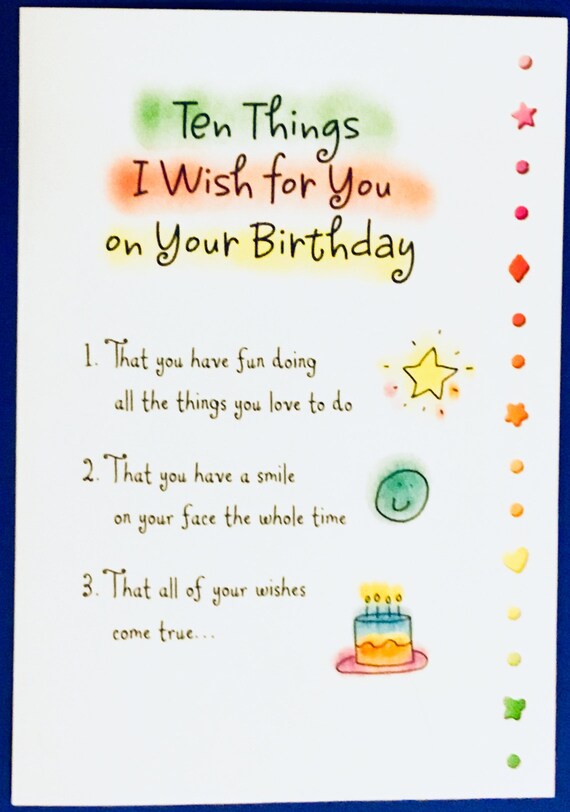 Ten Things
I Wish for You
on Your Birthday
1. That you have fun doing
all the things you love to do
2. That you have a smile
on your face the whole time
3. That all of your wishes
come true...